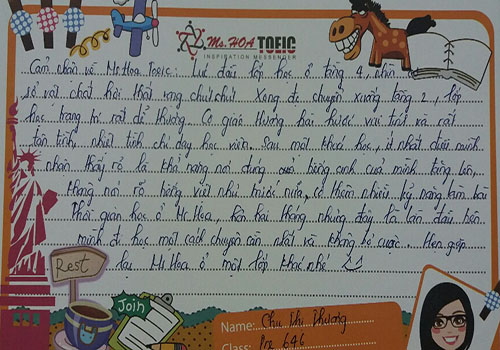 Ms. HOA TOEIC
INSPIRATION MESSENGER
Cảm nhận về Ms Hoa Toeic: Lúc đầu lớp học ở tầng 4, nhìn
sơ vật chất hơi thất vọng chút chút. Xong đc chuyển xuống tầng 2, lớp
học trang trí rất dễ thương. Cô giáo Hương hài hước vui tính và rất
tận tình, nhiệt tình chỉ dạy học viên. Sau một khoá học, ít nhất điều mình
nhận thấy rõ là khả năng nói đúng của tiếng anh của mình tăng lên,
không nói rỗ tiếng việt như trước nữa, có thêm nhiều kỹ năng làm bài
Thời gian học ở Ms Hoa, hơn hai tháng nhưng đây là lần đầu tiên
mình đi học một cách chuyên cần nhất và không bỏ cuộc. Hẹn gặp
lại Ms Hoa ở một lớp khác nhé
Rest
Join
Name: Chu Thị Phương
Class: Pre 646